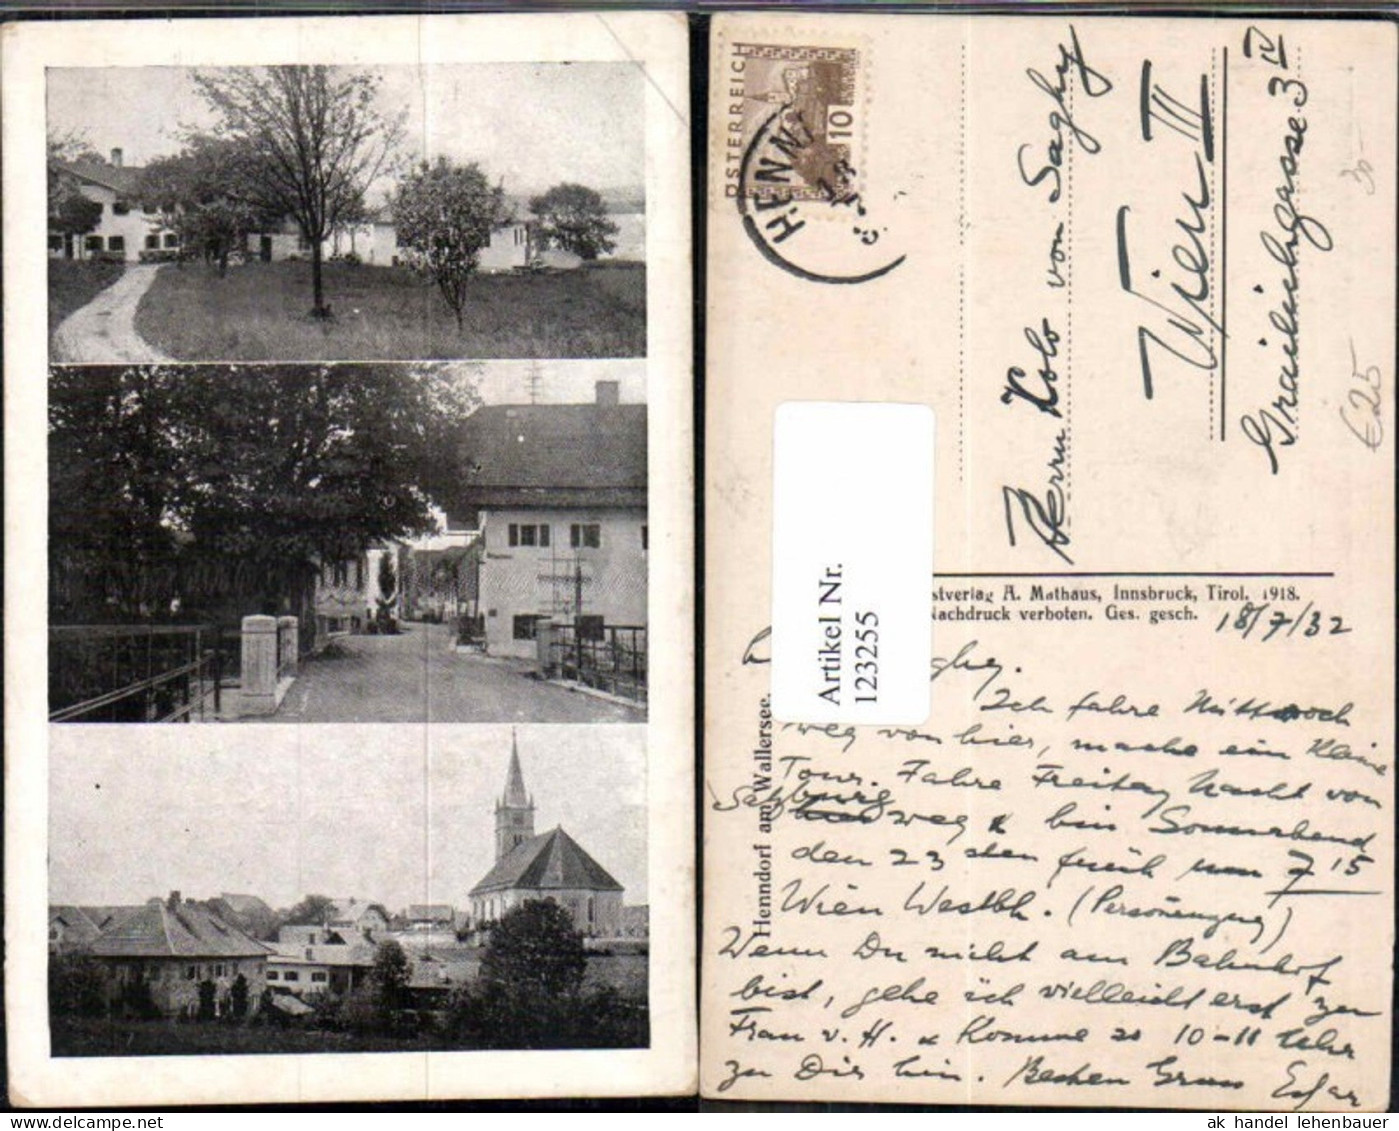 ÖSTERREICH
10
HENN
Herrn Kolo von Saghy
Wien III
Grailichgasse 3 IV
30-
€25
Artikel Nr.
123255
stverlag A. Mathaus, Innsbruck, Tirol. 1918.
Nachdruck verboten. Ges. gesch.
Henndorf am Wallersee.
18/7/32
Ich fahre Mittwoch
weg von hier, mache ein Kleine
Tour. Fahre Freitag Nacht von
Salzburg weg & bin Sonnabend
den 23 sten früh um 7 15
Wien Westbh. (Personenzug)
Wenn Du nicht am Bahnhof
bist, gehe ich vielleicht erst zur
Frau v. H. & komme so 10-11 Uhr
zu Dir hin. Besten Gruss Edgar
ak handel lehenbauer